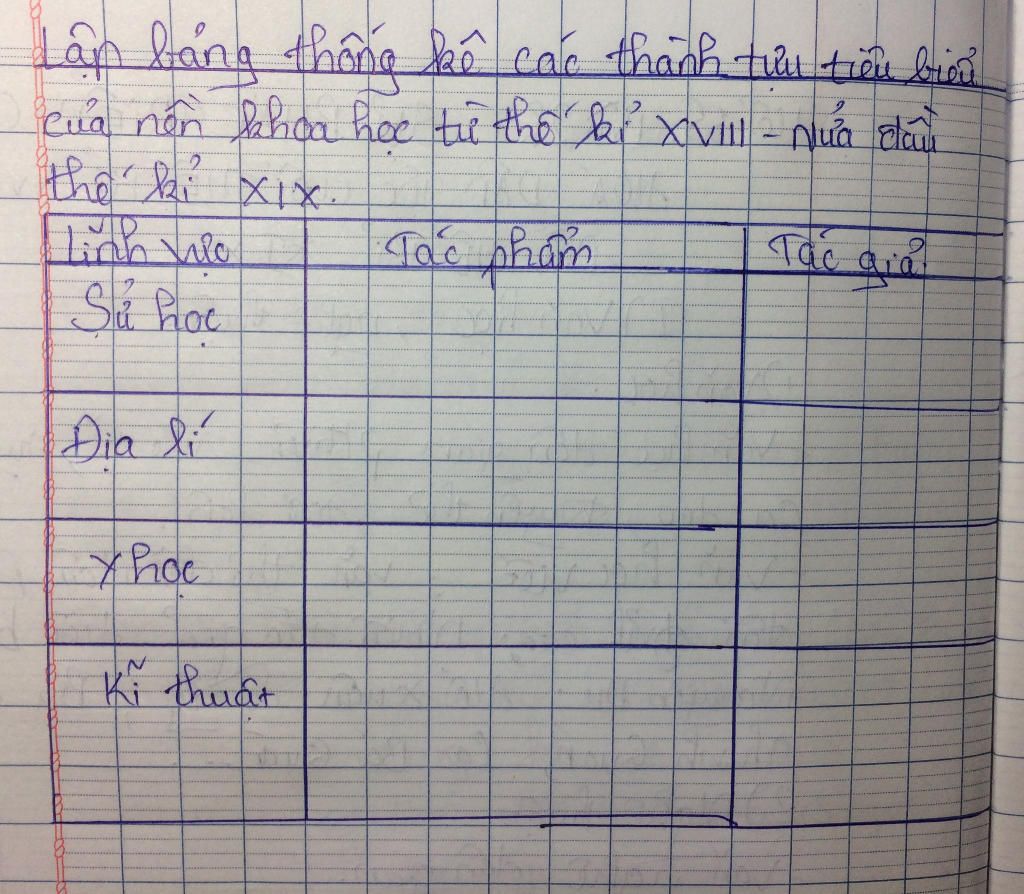 Lập bảng thống kê các thành tựu tiêu biểu
của nền khoa học từ thế kỉ XVIII - Nửa đầu
thế kỉ XIX.
Lĩnh vực Tác phẩm Tác giả
Sử học
Địa lí
Y học
Kĩ thuật